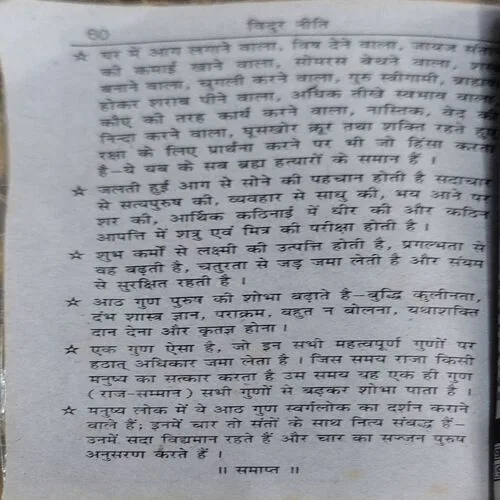 60 विदुर नीति
☆ घर में आग लगाने वाला, विष देने वाला, जायज
की कमाई खाने वाला, सोमरस बेचने वाला,
बनाने वाला, चुगली करने वाला, गुरु स्त्रीगामी,
होकर शराब पीने वाला, अधिक तीखे स्वभाव वाला
कौए की तरह कार्य करने वाला, नास्तिक, वेद की
निन्दा करने वाला, घूसखोर क्रूर तथा शक्ति रहते हुए
रक्षा के लिए प्रार्थना करने पर भी जो हिंसा करता
है–ये यब के सब ब्रह्म हत्यारों के समान हैं ।
☆ जलती हुई आग से सोने की पहचान होती है सदाचार
से सत्यपुरुष की, व्यवहार से साधु की, भय आने पर
शर की, आर्थिक कठिनाई में धीर की और कठिन
आपत्ति में शत्रु एवं मित्र की परीक्षा होती है ।
☆ शुभ कर्मों से लक्ष्मी की उत्पत्ति होती है, प्रगल्भता से
वह बढ़ती है, चतुरता से जड़ जमा लेती है और संयम
से सुरक्षित रहती है ।
☆ आठ गुण पुरुष की शोभा बढ़ाते है–बुद्धि कुलीनता,
दंभ शास्त्र ज्ञान, पराक्रम, बहुत न बोलना, यथाशक्ति
दान देना और कृतज्ञ होना ।
☆ एक गुण ऐसा है, जो इन सभी महत्वपूर्ण गुणों पर
हठात् अधिकार जमा लेता है । जिस समय राजा किसी
मनुष्य का सत्कार करता है उस समय यह एक ही गुण
(राज-सम्मान) सभी गुणों से बढ़कर शोभा पाता है ।
☆ मनुष्य लोक में ये आठ गुण स्वर्गलोक का दर्शन कराने
वाले हैं; इनमें चार तो संतों के साथ नित्य संबद्ध हैं–
उनमें सदा विद्यमान रहते हैं और चार का सज्जन पुरुष
अनुसरण करते हैं ।
॥ समाप्त ॥